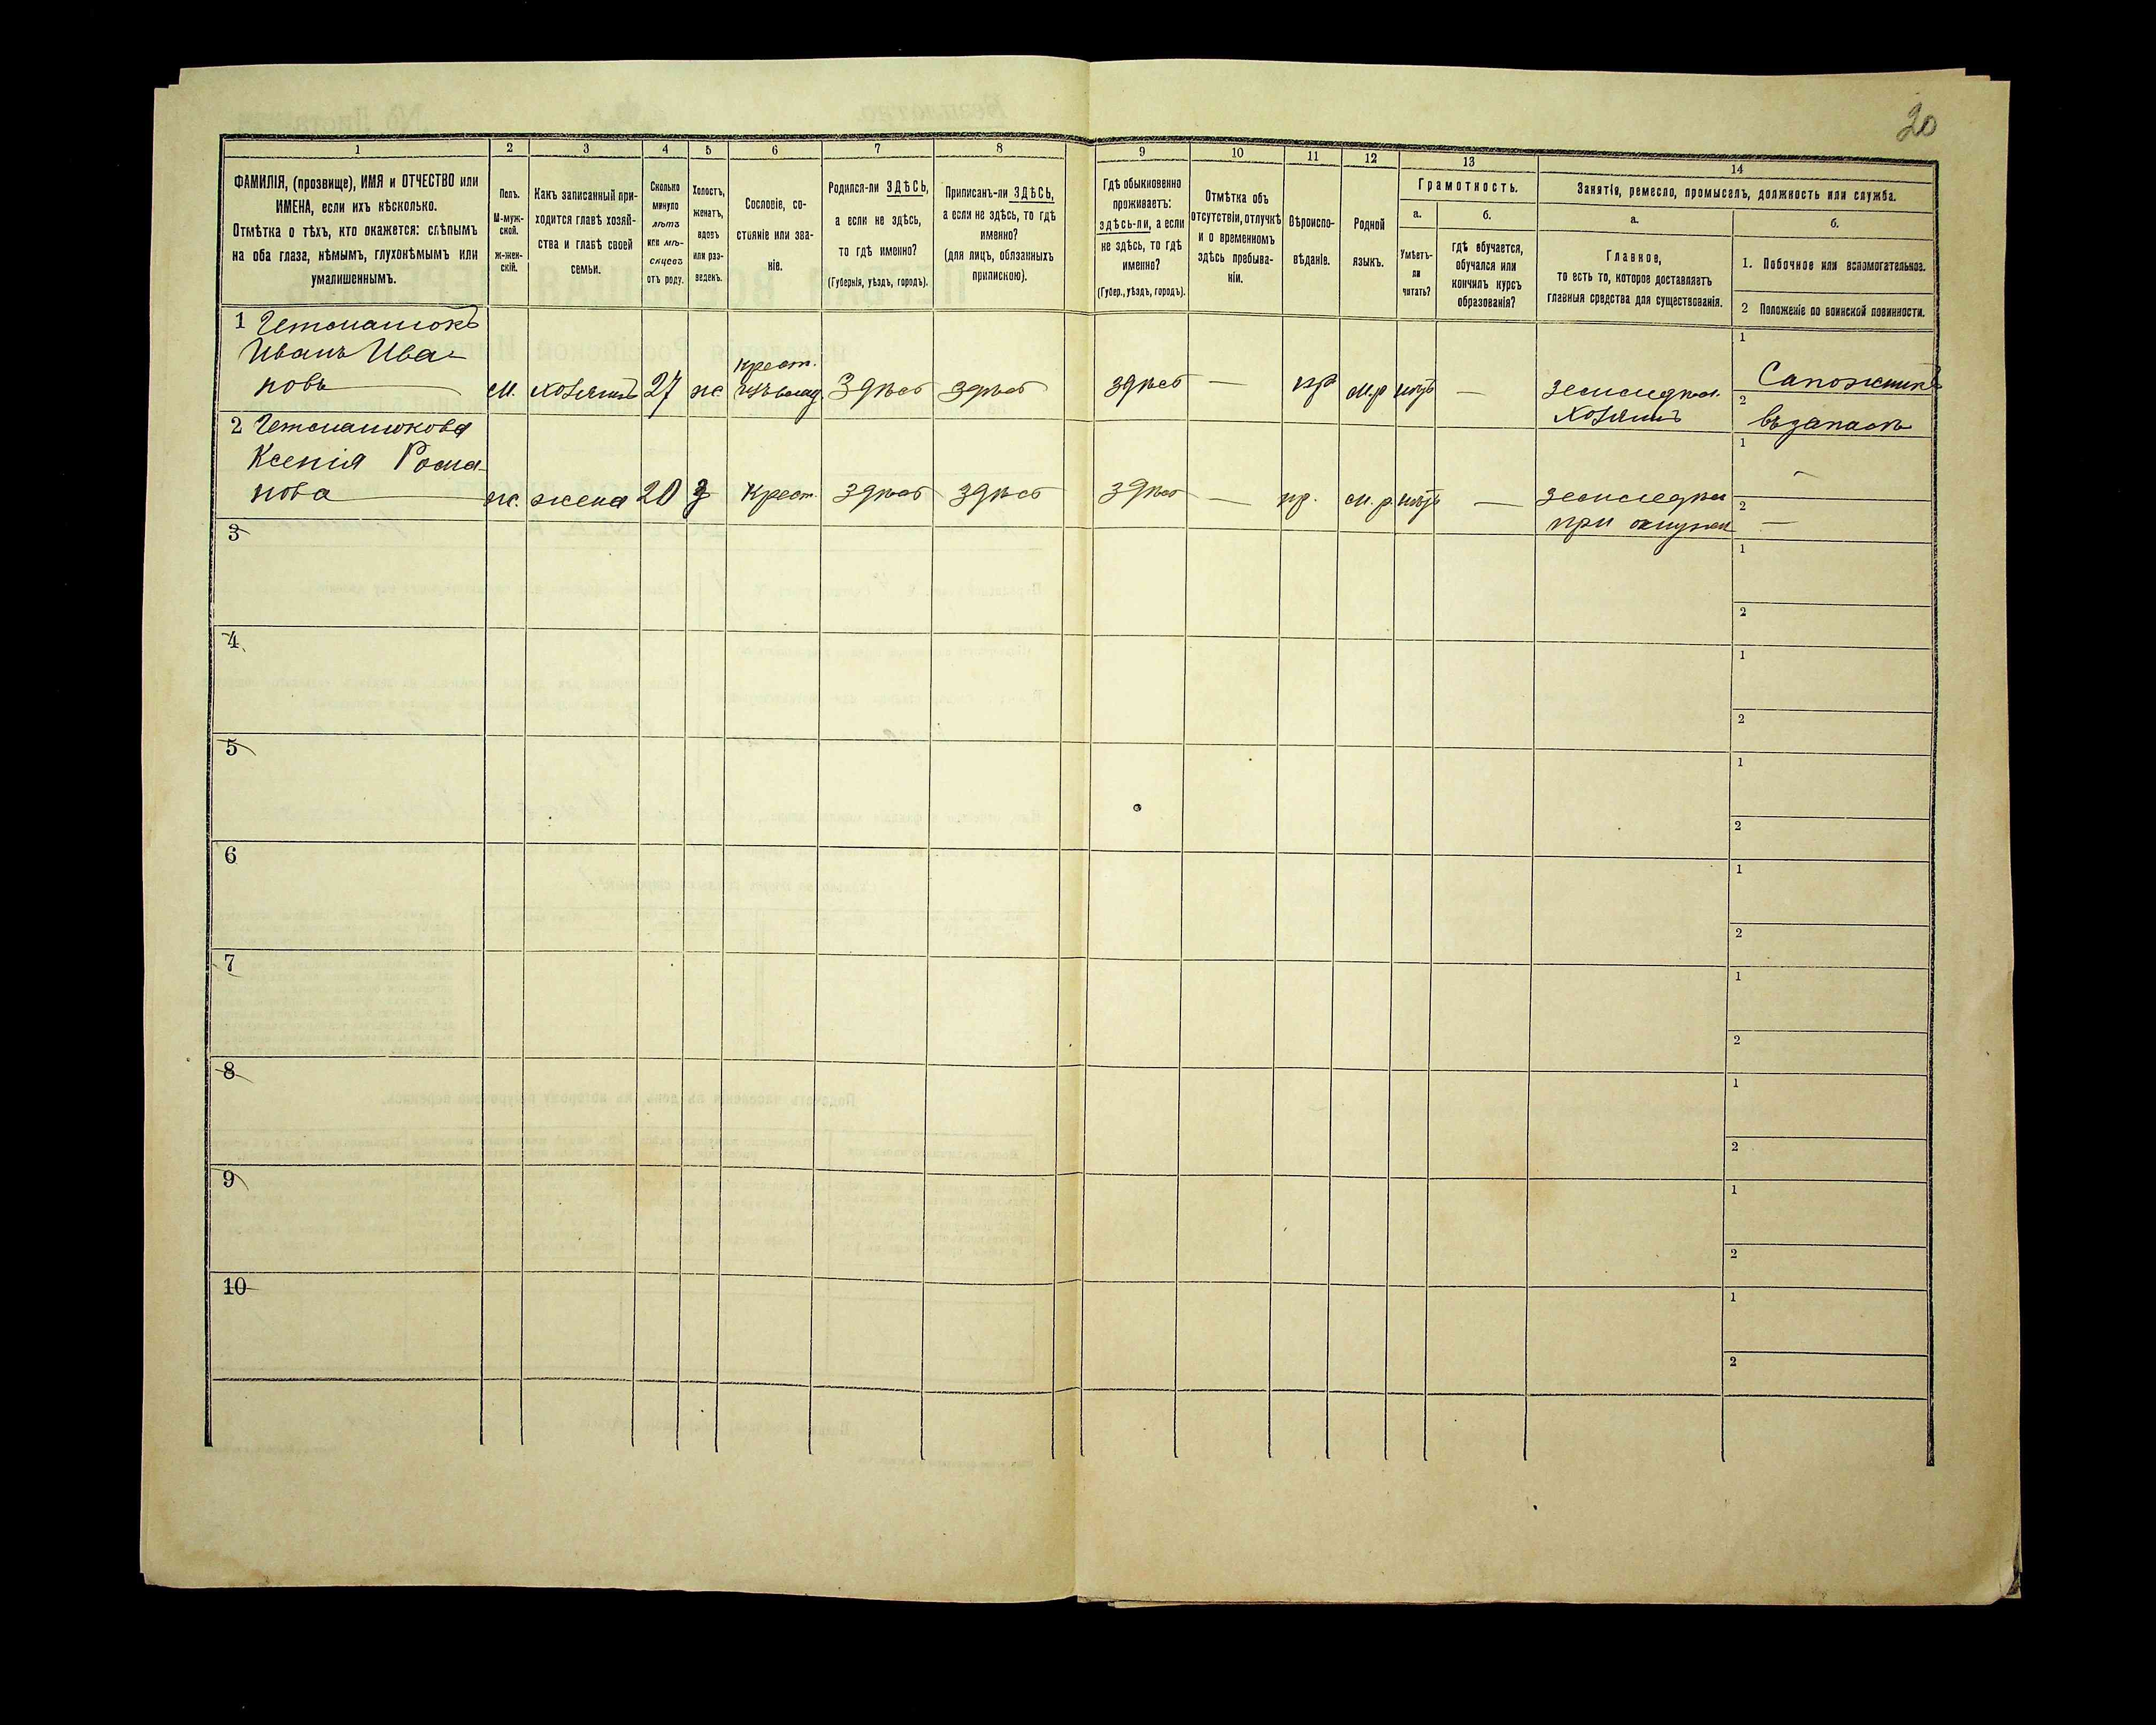 20
1 2 3 4 5 6 7 8 9 10 11 12 13 14
ФАМИЛІЯ, (прозвище), ИМЯ и ОТЧЕСТВО или
ИМЕНА, если ихъ нѣсколько.
Отмѣтка о тѣхъ, кто окажется: слѣпымъ
на оба глаза, нѣмымъ, глухонѣмымъ или
умалишеннымъ.
Полъ.
М-муж-
ской.
Ж-жен-
скій.
Какъ записанный при-
ходится главѣ хозяй-
ства и главѣ своей
семьи.
Сколько
минуло
лѣтъ
или мѣ-
сяцевъ
отъ роду.
Холостъ,
женатъ,
вдовъ
или раз-
веденъ.
Сословіе, со-
стояніе или зва-
ніе.
Родился-ли ЗДѢСЬ,
а если не здѣсь,
то гдѣ именно?
(Губернія, уѣздъ, городъ).
Приписанъ-ли ЗДѢСЬ,
а если не здѣсь, то гдѣ
именно?
(для лицъ, обязанныхъ
припискою).
Гдѣ обыкновенно
проживаетъ:
здѣсь-ли, а если
не здѣсь, то гдѣ
именно?
(Губер., уѣздъ, городъ).
Отмѣтка объ
отсутствіи, отлучкѣ
и о временномъ
здѣсь пребыва-
ніи.
Вѣроиспо-
вѣданіе.
Родной
языкъ.
Грамотность.
а.
Умѣетъ-
ли
читать?
б.
гдѣ обучается,
обучался или
кончилъ курсъ
образованія?
Занятія, ремесло, промыселъ, должность или служба.
а.
Главное,
то есть то, которое доставляетъ
главныя средства для существованія.
б.
1. Побочное или вспомогательное.
2 Положеніе по воинской повинности.
1 Гетманюкъ
Иванъ Ива-
новъ
м. хозяинъ 27 ж.
крест.
здѣсь здѣсь здѣсь — пр м.р нѣтъ — земледѣл.
хозяинъ
1 Сапожникъ
2 въ запасѣ
2 Гетманюкова
Ксенія Рома-
нова
ж. жена 20 з крест. здѣсь здѣсь здѣсь — пр. м.р. нѣтъ — земледѣл
при мужѣ
1 —
2 —
3
1
2
4
1
2
5
1
2
6
1
2
7
1
2
8
1
2
9
1
2
10
1
2